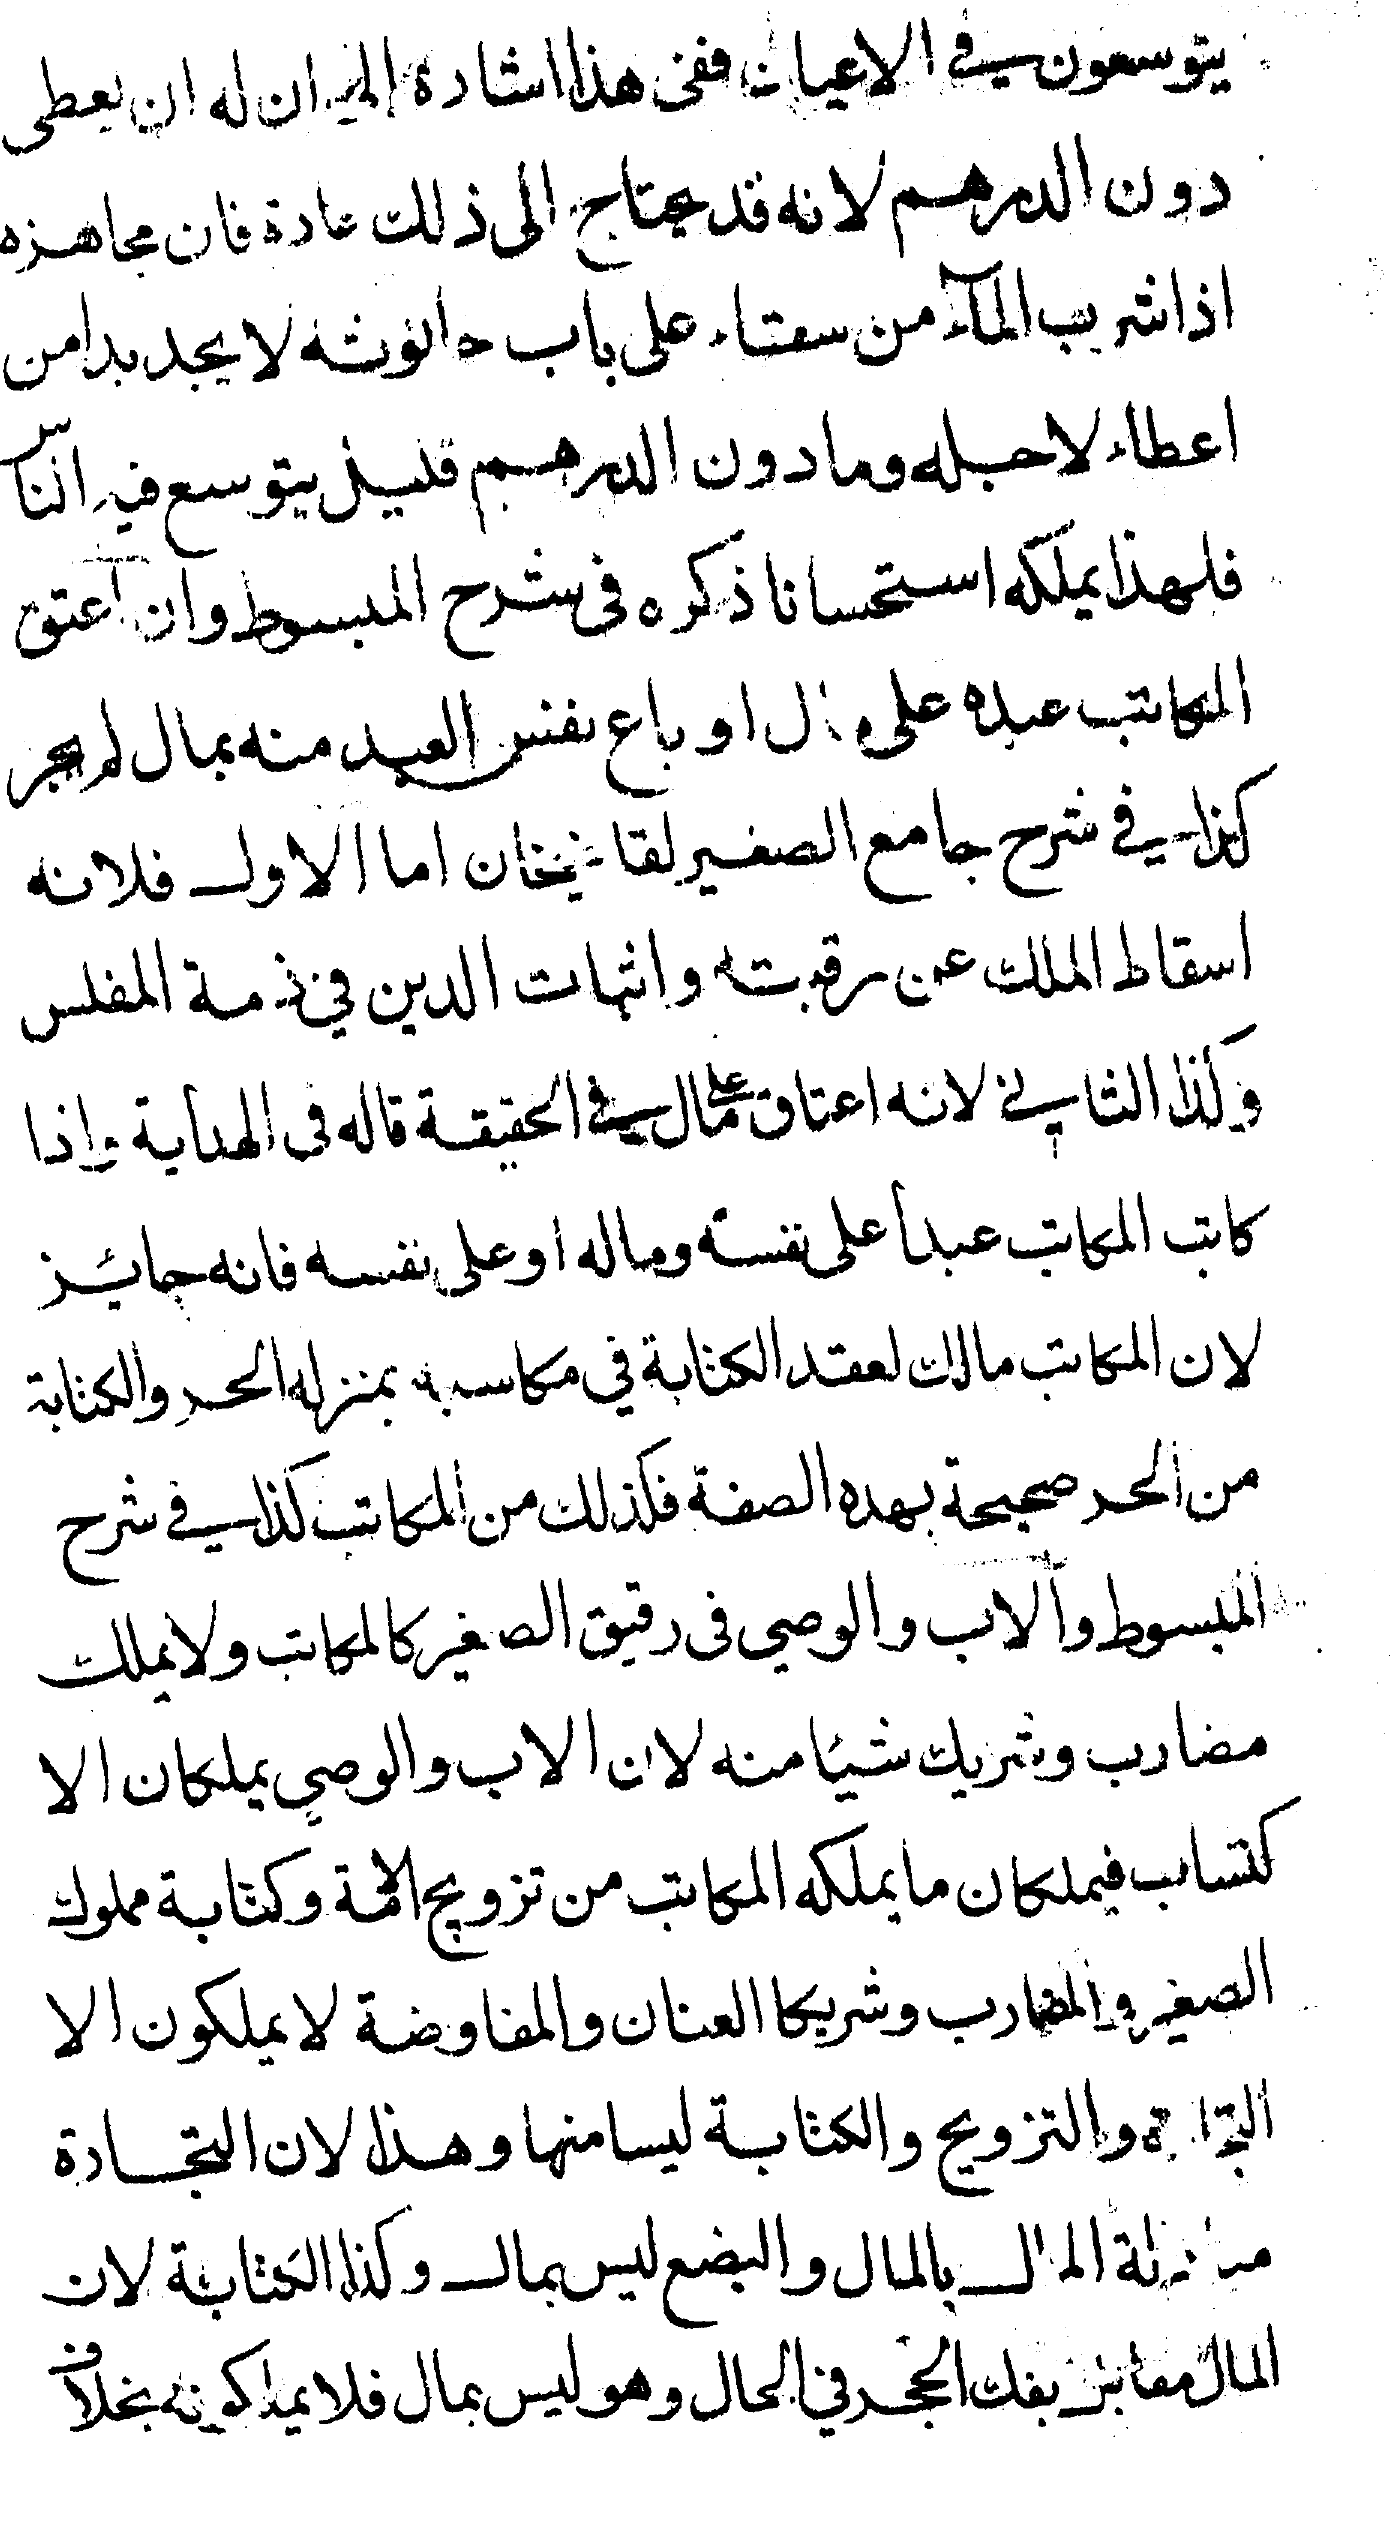 يتوسعون في الاعيان ففى هذا اشارة الى ان له ان يعطى
دون الدرهم لانه قد يحتاج الى ذلك عادة فان مجاهزه
اذا شرب المآء من سقاء على باب حانوته لا يجد بدا من
اعطاء لاجله وما دون الدرهم قليل يتوسع فيه الناس
فلهذا يملكه استحسانا ذكره فى شرح المبسوط وان اعتق
المكاتب عبده على مال او باع نفس العبد منه بمال لم يجز
كذا في شرح جامع الصغير لقاضيخان اما الاول فلانه
اسقاط الملك عن رقبته واثبات الدين في ذمة المفلس
وكذا الثاني لانه اعتاق على مال في الحقيقة قاله فى الهداية واذا
كاتب المكاتب عبدا على نفسه وماله او على نفسه فانه جائز
لان المكاتب مالك لعقد الكتابة في مكاسبه بمنزله الحر والكتابة
من الحر صحيحة بهده الصفة فكذلك من المكاتب كذا في شرح
المبسوط والاب والوصي فى رقيق الصغير كالمكاتب ولا يملك
مضارب وشريك شيئا منه لان الاب والوصي يملكان الا
كتساب فيملكان ما يملكه المكاتب من تزويج الامة وكتابة مملوك
الصغير والمضارب وشريكا العنان والمفاوضة لا يملكون الا
التجارة والتزويج والكتابة ليسا منها وهذا لان التجارة
مبادلة المال بالمال والبضع ليس بمال وكذا الكتابة لان
المال مقابل بفك الحجر في الحال وهو ليس بمال فلا يملكونه بخلاف